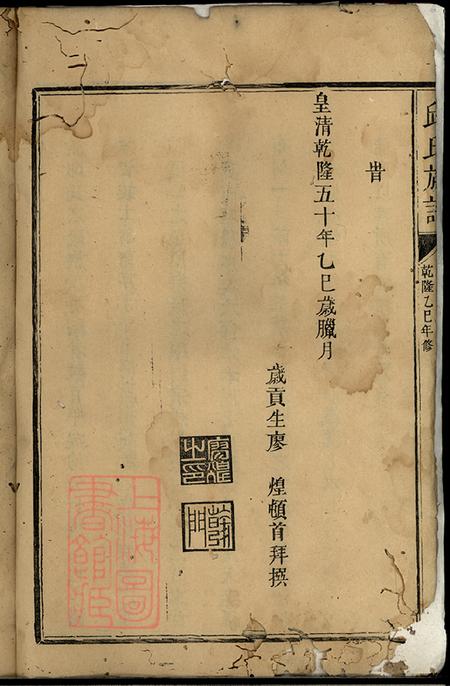 邱氏族譜
乾隆乙巳年修
旹
皇清乾隆五十年乙巳歲臘月
歲貢生廖 煌頓首拜撰
廖煌之印
上海圖書館藏